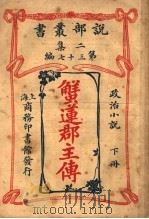 說部叢書
二集
第三十七編
政治小說 下冊
蟹蓮郡主傳
上海商務印書館發行